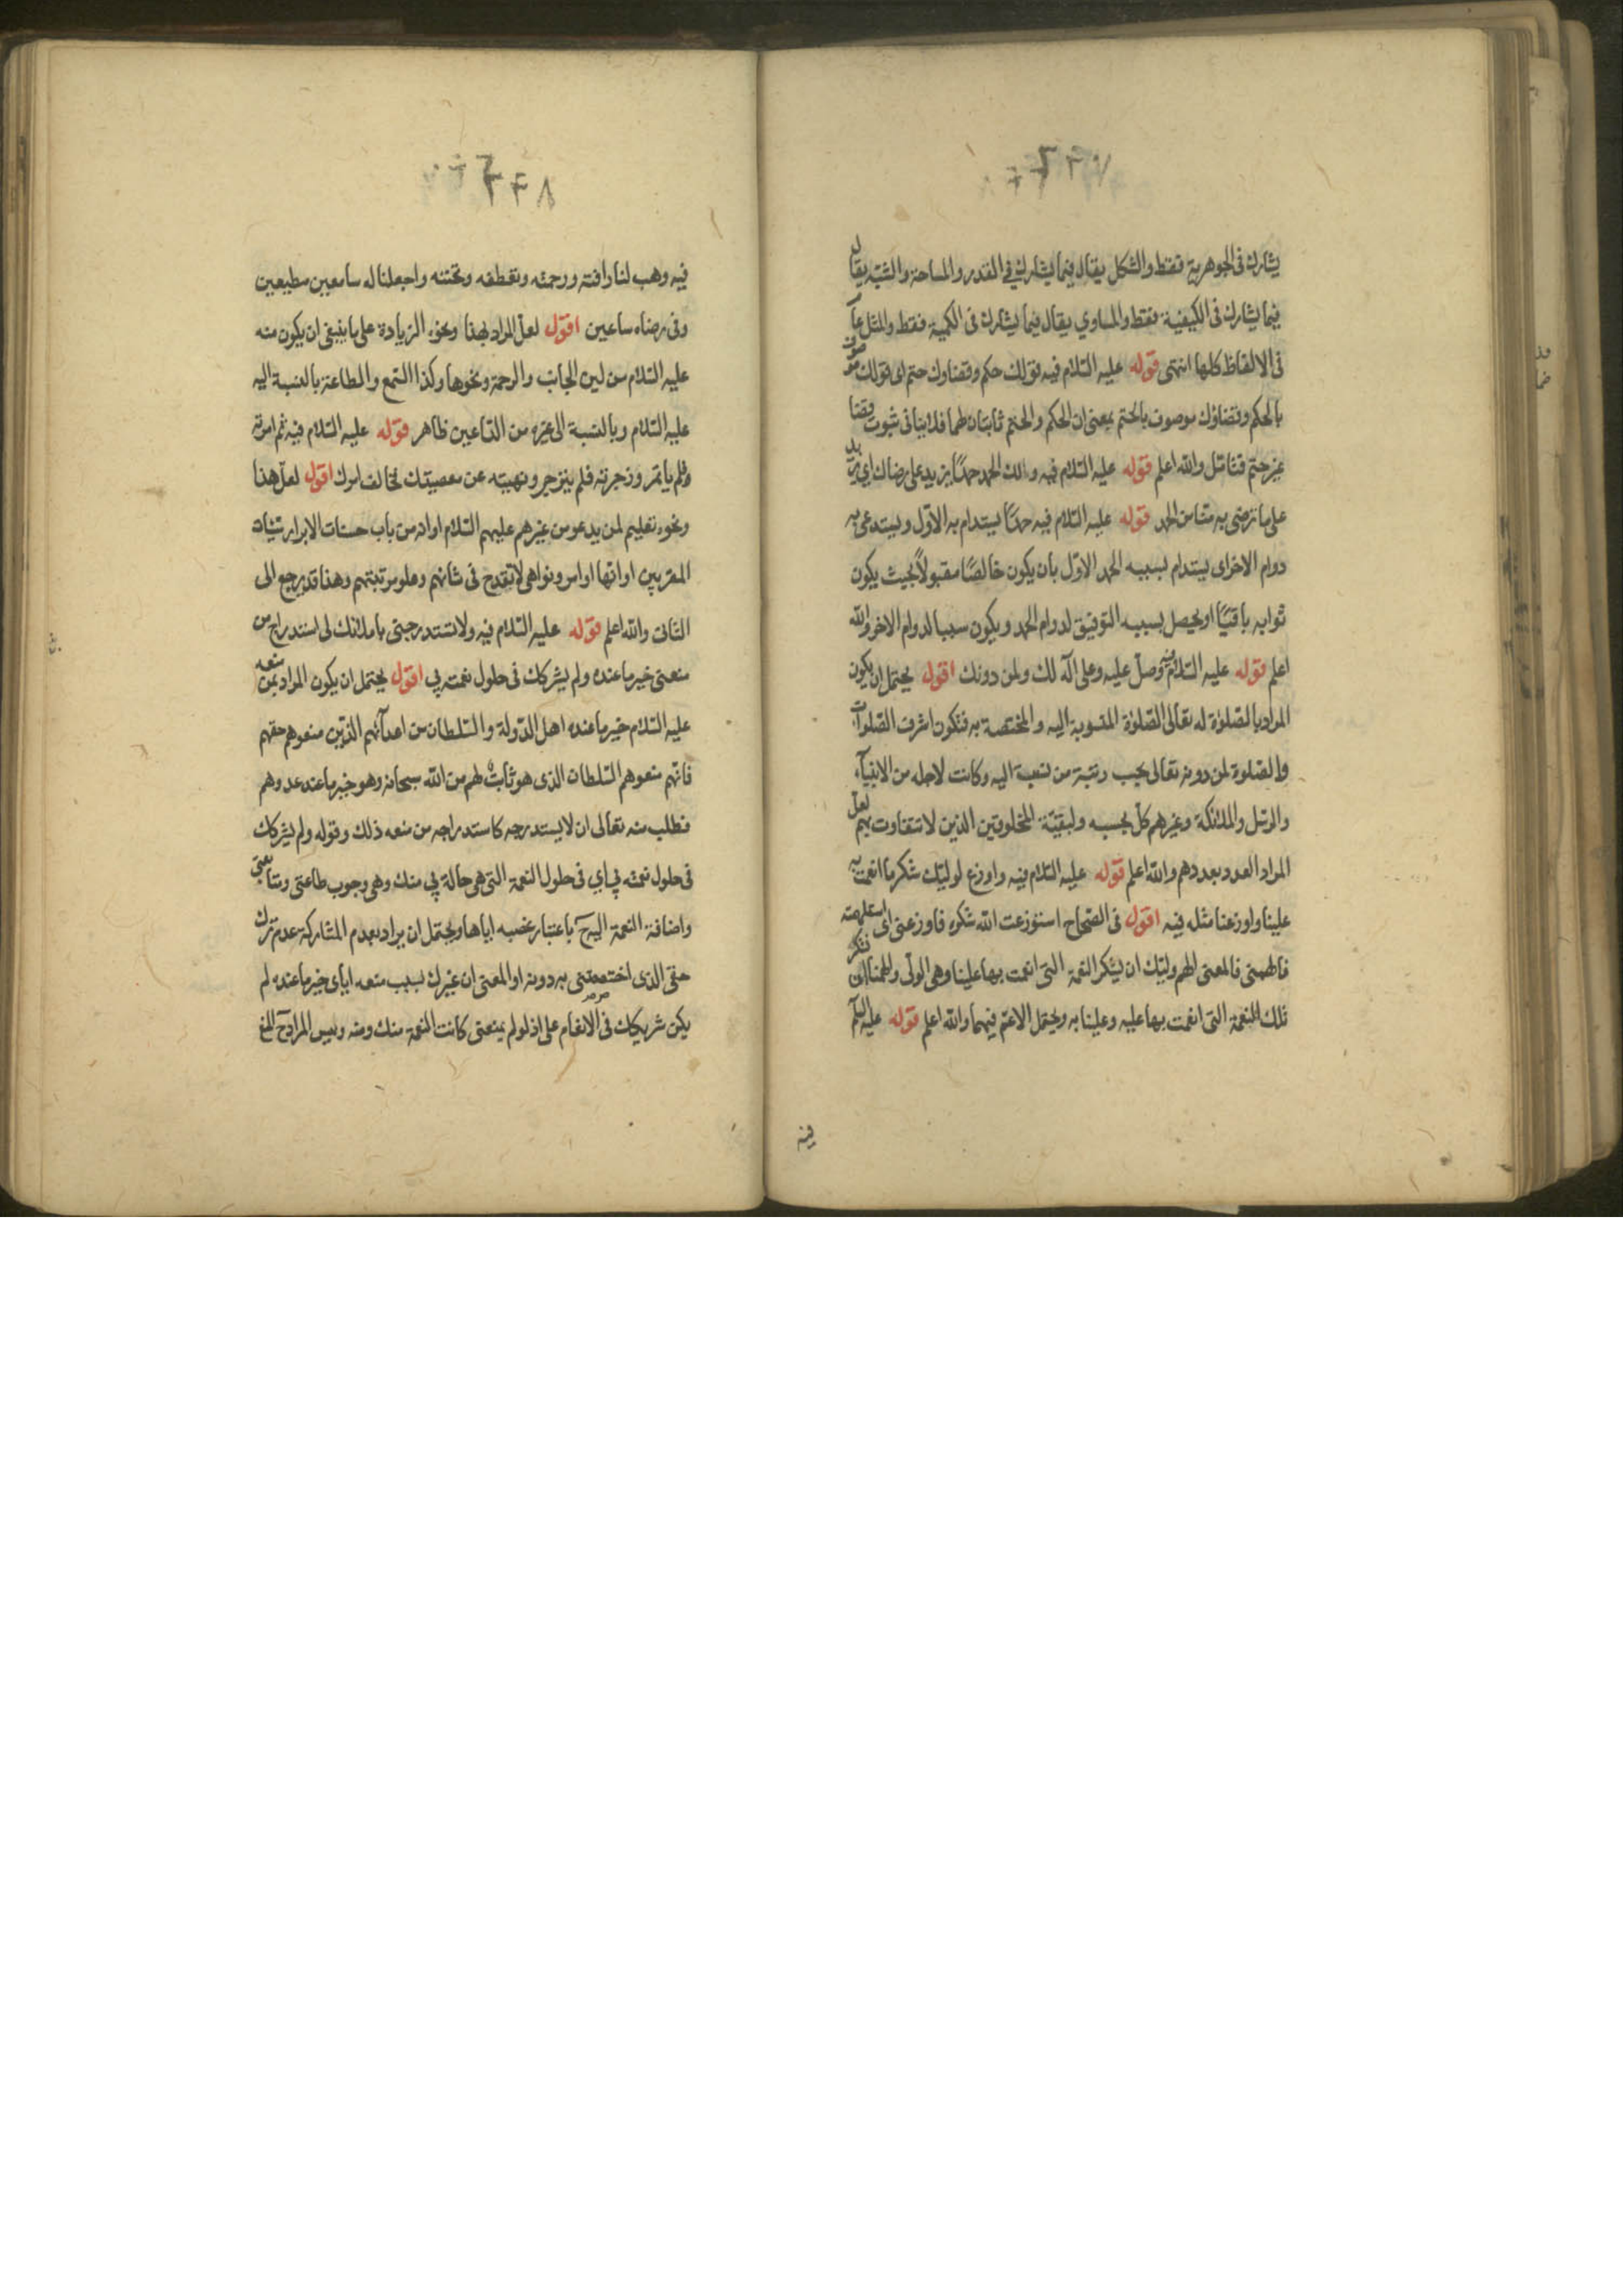 يشارك فى الجوهرية فقط والشكل يقال فيما يشارك فى القدر والمساحة والشبه يقال
فيما يشارك فى الكيفية فقط والمساوي يقال فيما يشارك فى الكمية فقط والمثل عام
فى الالفاظ كلها انتهى قوله عليه السّلام فيه قولك حكم وقضاوك حتم اى قولك موصوف
بالحكم وقضاؤك موصوف بالحتم بمعنى ان الحكم والحتم ثابتان لهما فلا ينافى ثبوت قضا
غير حتم فتامّل والله اعلم قوله عليه السّلام فيه ولك الحمد حمدًا يزيد على رضاك اي يزيد
على ما ترضى به منّا من الحمد قوله عليه السّلام فيه حمدًا يستدام به الاوّل ويستدعى به
دوام الاخر اى يستدام بسببه الحمد الاوّل بان يكون خالصًا مقبولاً بحيث يكون
ثوابه باقيًا او يحصل بسببه التوفيق لدوام الحمد ويكون سببا لدوام الاخر والله
اعلم قوله عليه السّلام فيه وصلّ عليه وعلى آله لك ولمن دونك اقول يحتمل ان يكون
المراد بالصّلوٰة له تعالى الصّلوٰة المنسوبة اليه والمختصة به فتكون اشرف الصّلوات
والصّلوة لمن دونه تعالى بحسب رتبة من نسبت اليه وكانت لاجله من الانبيآء
والرّسل والملائكة وغيرهم كلّ بحسبه ولبقيّة المخلوقين الذين لا تتفاوت بهم لعلّ
المراد العدد بعددهم والله اعلم قوله عليه السّلام فيه واوزع لوليّك شكر ما انعمت به
علينا واوزعنا مثله فيه اقول فى الصّحاح استوزعت الله شكره فاوزعنى اى استلهمته
فالهمنى فالمعنى الهم وليّك ان يشكر النعمة التى انعمت بها علينا وهى الولى والهمنا ان نشكر
تلك النعمة التى انعمت بها عليه وعلينا به ويحتمل الاعمّ فيهما والله اعلم قوله عليه السّلم
فيه
٢٢٨
فيه وهب لنا رافته ورحمته وتعطفه وتحننه واجعلنا له سامعين مطيعين
وفى رضاه ساعين اقول لعلّ المراد بهذا ونحوه الزيادة على ما ينبغى ان يكون منه
عليه السّلام من لين الجانب والرحمة ونحوها وكذا السّمع والطاعة بالنسبة اليه
عليه السّلام وبالنسبة الى غيره من الدّاعين ظاهر قوله عليه السّلام فيه ثم امرته
فلم ياتمر وزجرته فلم ينزجر ونهيته عن معصيتك فخالف امرك اقول لعلّ هذا
ونحوه تعليم لمن يدعو من غيرهم عليهم السّلام او انه من باب حسنات الابرار سيّئات
المقربين او انها اوامر ونواهى لا تقدح فى شانهم وعلو مرتبتهم وهذا قد يرجع الى
الثانى والله اعلم قوله عليه السّلام فيه ولا تستدرجنى باملائك لى استدراج من
منعنى خير ما عنده ولم يشركك فى حلول نعمته بي اقول يحتمل ان يكون المراد بمن منعه
عليه السّلام خير ما عنده اهل الدّولة والسّلطان من اعدآئهم الذّين منعوهم حقهم
فانّهم منعوهم السّلطان الذى هو ثابت لهم من الله سبحانه وهو خير ما عند عدوهم
فطلب منه تعالى ان لا يستدرجه كاستدراجه من منعه ذلك وقوله ولم يشركك
فى حلول نعمته بي اي فى حلول النعمة التى هى حالة بي منك وهى وجوب طاعتى ومتابعتى
واضافة النعمة اليه ح باعتبار غصبه اياها ويحتمل ان يراد بعدم المشاركة عدم ترك
حقى الذى اختصصتنى به دونه او المعنى ان غيرك بسبب منعه اياى خير ما عنده لم
يكن شريكك فى الانعام علىّ اذ لو لم يمنعنى كانت النعمة منك ومنه وليس المراد ح المنع